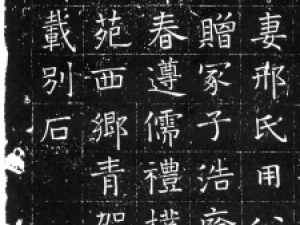 妻邢氏用
贈冢子浩
春遵儒禮
苑西鄉青
載别石